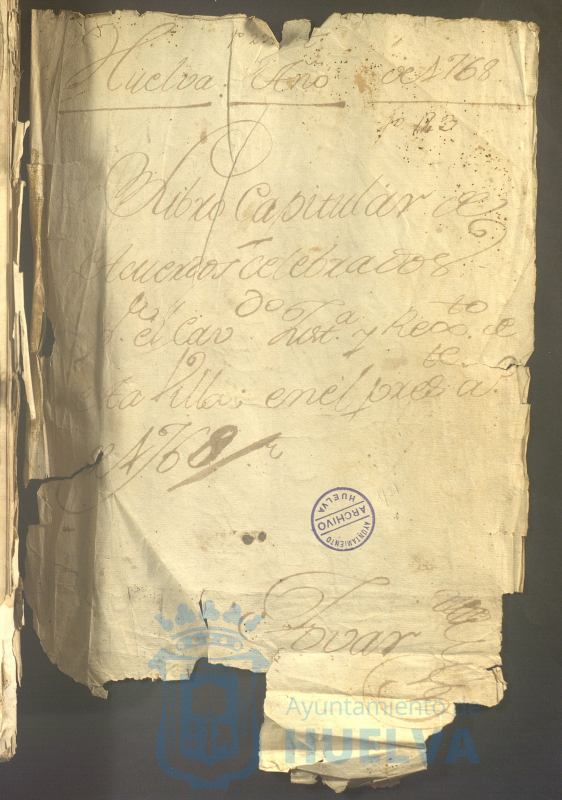 Huelva. Año de 1768
Libro Capitular de
Acuerdos celebrados
p.r el Cav.do Just.a y Rex.to de
esta Villa; en el pres.te a.o
de 1768
AYUNTAMIENTO
ARCHIVO
HUELVA
Tovar
Ayuntamiento de
HUELVA